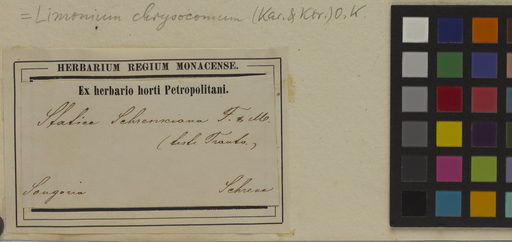 = Limonium chrysocomum (Kar. & Kir.) O. K.
HERBARIUM REGIUM MONACENSE.
Ex herbario horti Petropolitani.
Statice Schrenkiana F. & M.
(teste Trautv.)
Songoria Schrenk